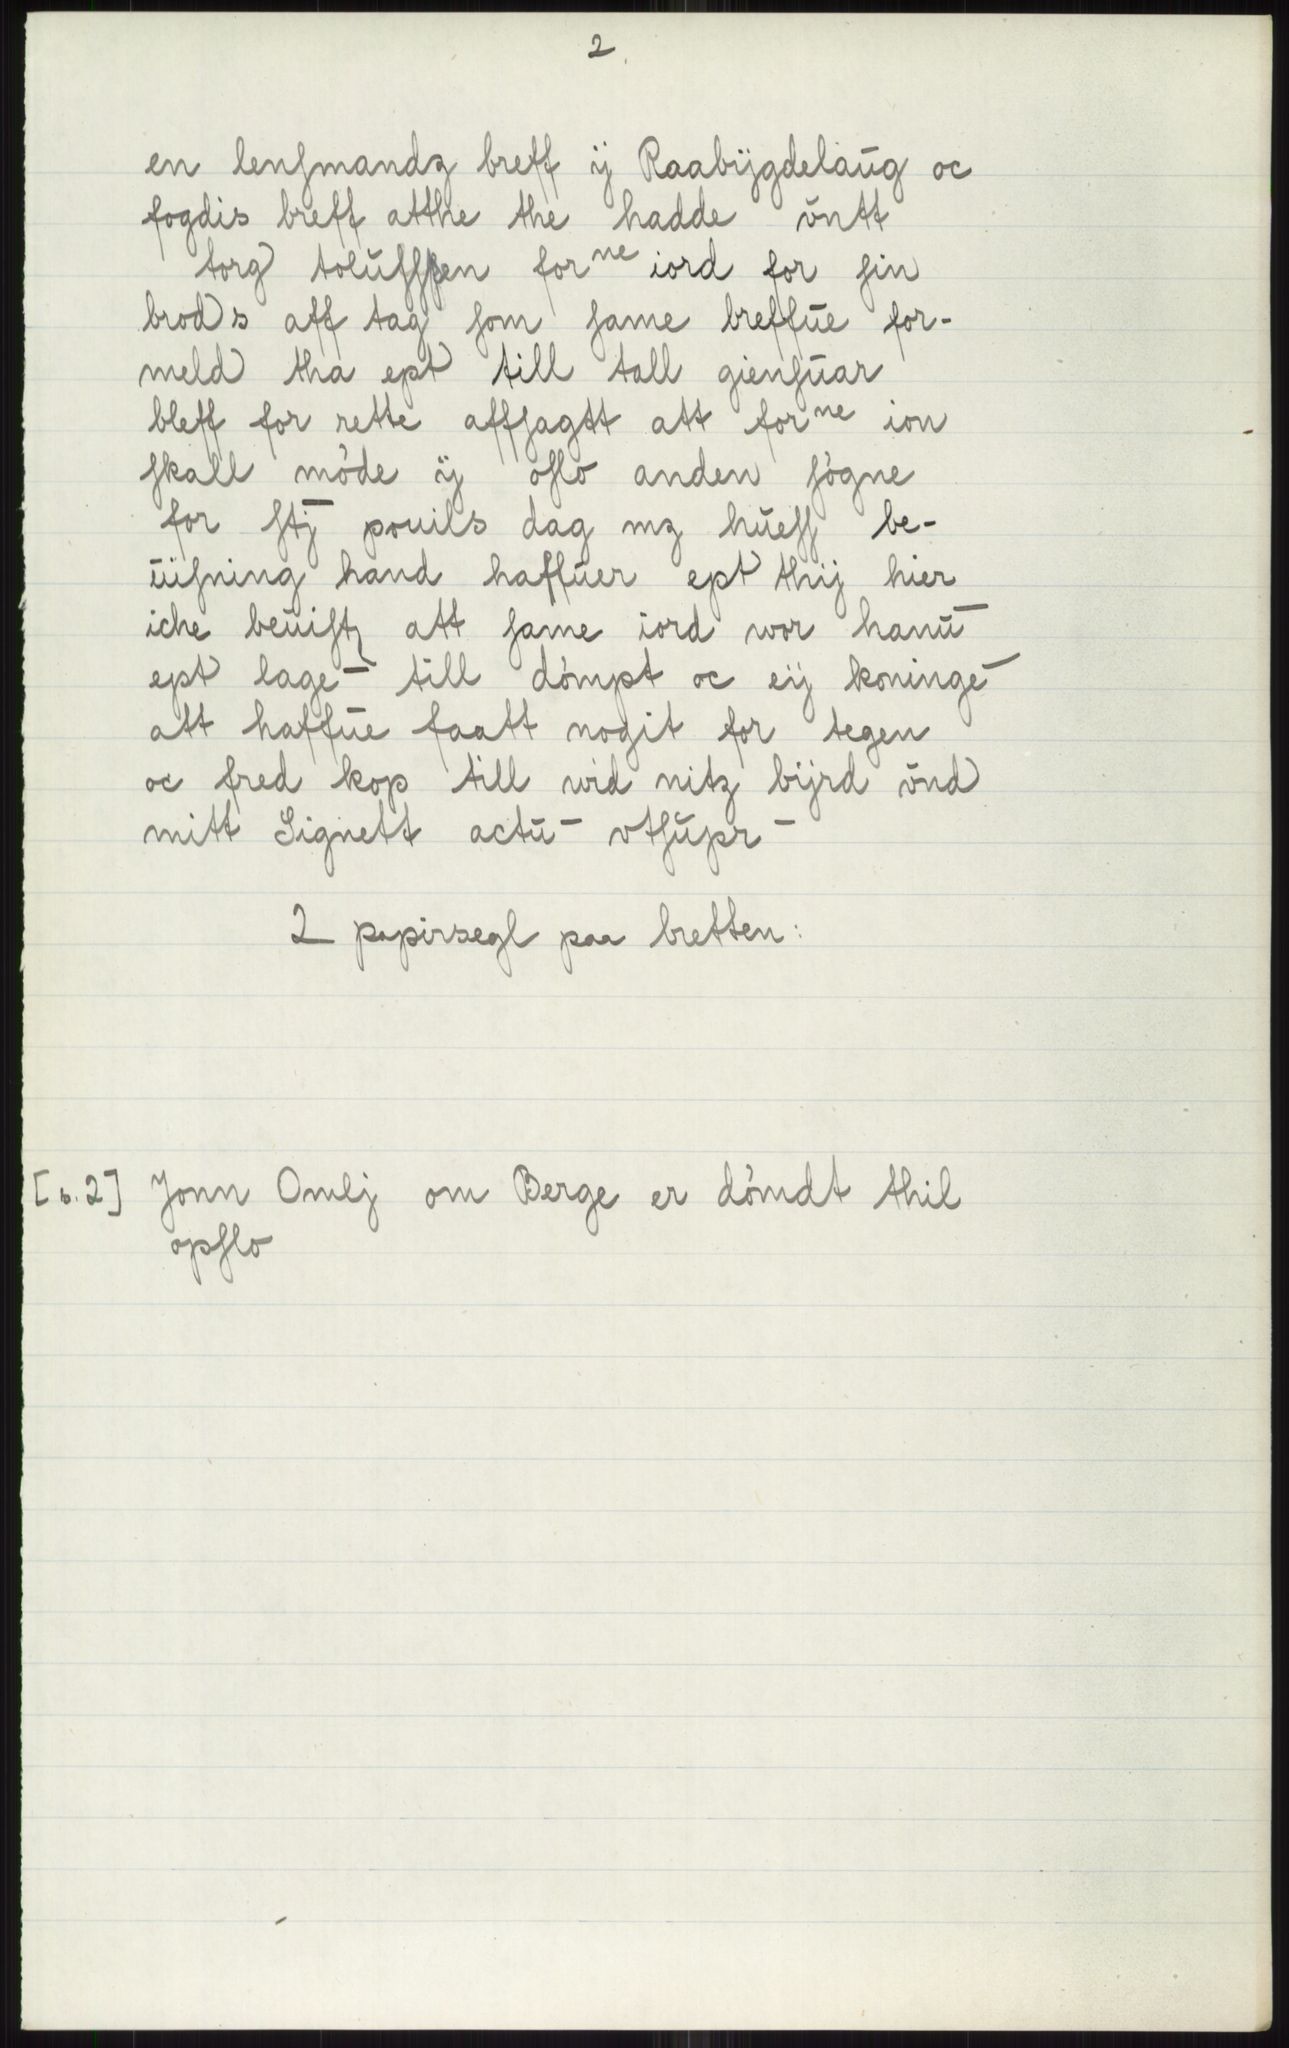 2
en lensmandz breff ÿ Raabÿgdelaūg oc
fogdis breff atthe the hadde ūntt
torg tolūffsen forne iord for sin
brods aff tag som same breffūe for-
meld tha ept till tall giensūar
bleff for rette affsagtt att forne ion
skall möde ÿ oslo anden sögne
for stj pouils dag mz hūess be-
ūisning hand haffūer ept thij hier
iche beūistz att same iord wor hanū
ept lage- till dömpt oc eÿ koninge-
att haffūe faatt nogit for tegen
oc fred kop till wid nitz bÿrd ūnd
mitt Signett actū- vtsūpr-
2 papirsegl paa bretten:
[s. 2] Jonn Omlj om Berge er dömdt thil
opslo